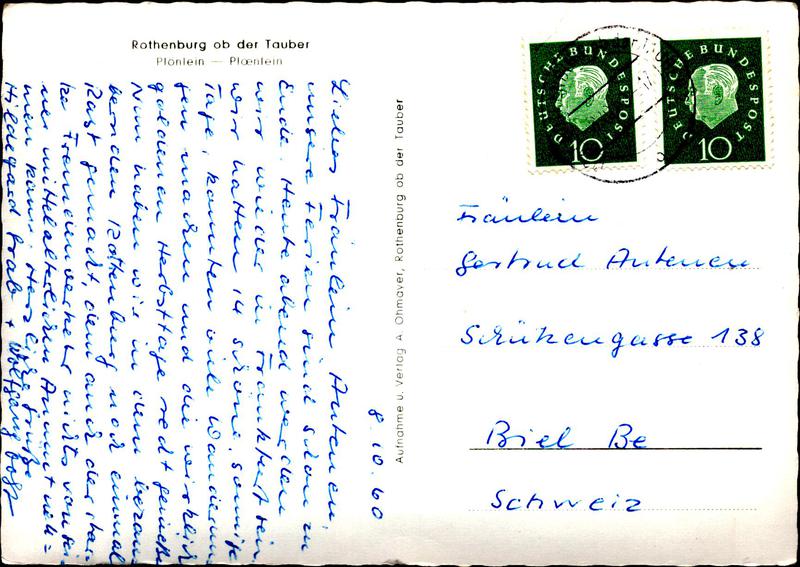 Rothenburg ob der Tauber
Plönlein — Plœnlein
8.10.60
Liebes Fräulein Antenen,
unsere Ferien sind schon zu
Ende. Heute abend werden
wir wieder in Frankfurt sein.
Wir hatten 14 schöne, sonnige
Tage, konnten viele Wanderun
gen machen und die wirklich
goldenen Herbsttage recht genießen
Nun haben wir in dem bezau
bernden Rothenburg noch einmal
Rast gemacht, dem auch der star
ke Fremdenverkehr nichts von sei
ner mittelalterlichen Anmut neh=
men kann. Herzliche Grüße
Hildegard + Wolfgang
Aufnahme u. Verlag A. Ohmayer, Rothenburg ob der Tauber
DEUTSCHE BUNDESPOST
10
DEUTSCHE BUNDESPOST
10
Fräulein
Gertrud Antenen
Schützengasse 138
Biel Be
Schweiz